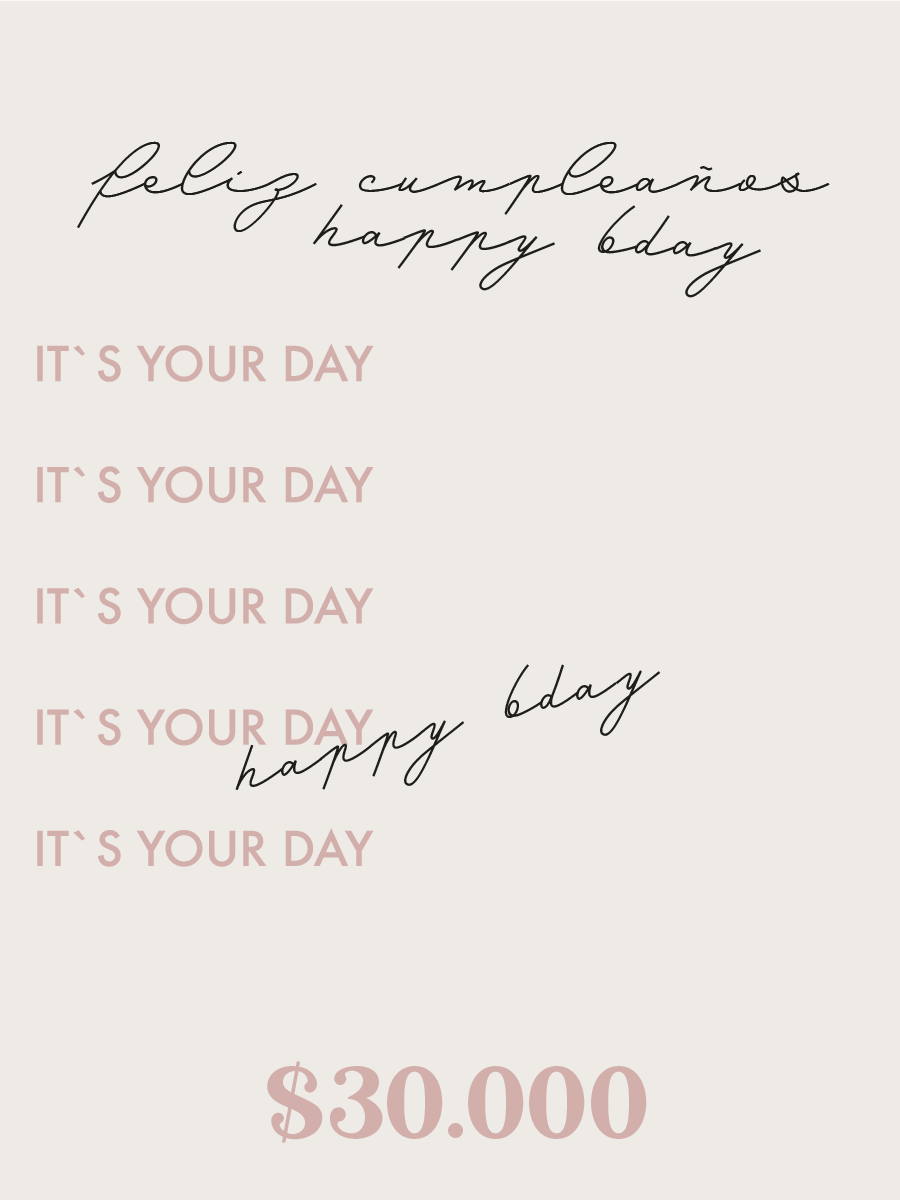 feliz cumpleaños
happy bday
IT`S YOUR DAY
IT`S YOUR DAY
IT`S YOUR DAY
IT`S YOUR DAY
happy bday
IT`S YOUR DAY
$30.000